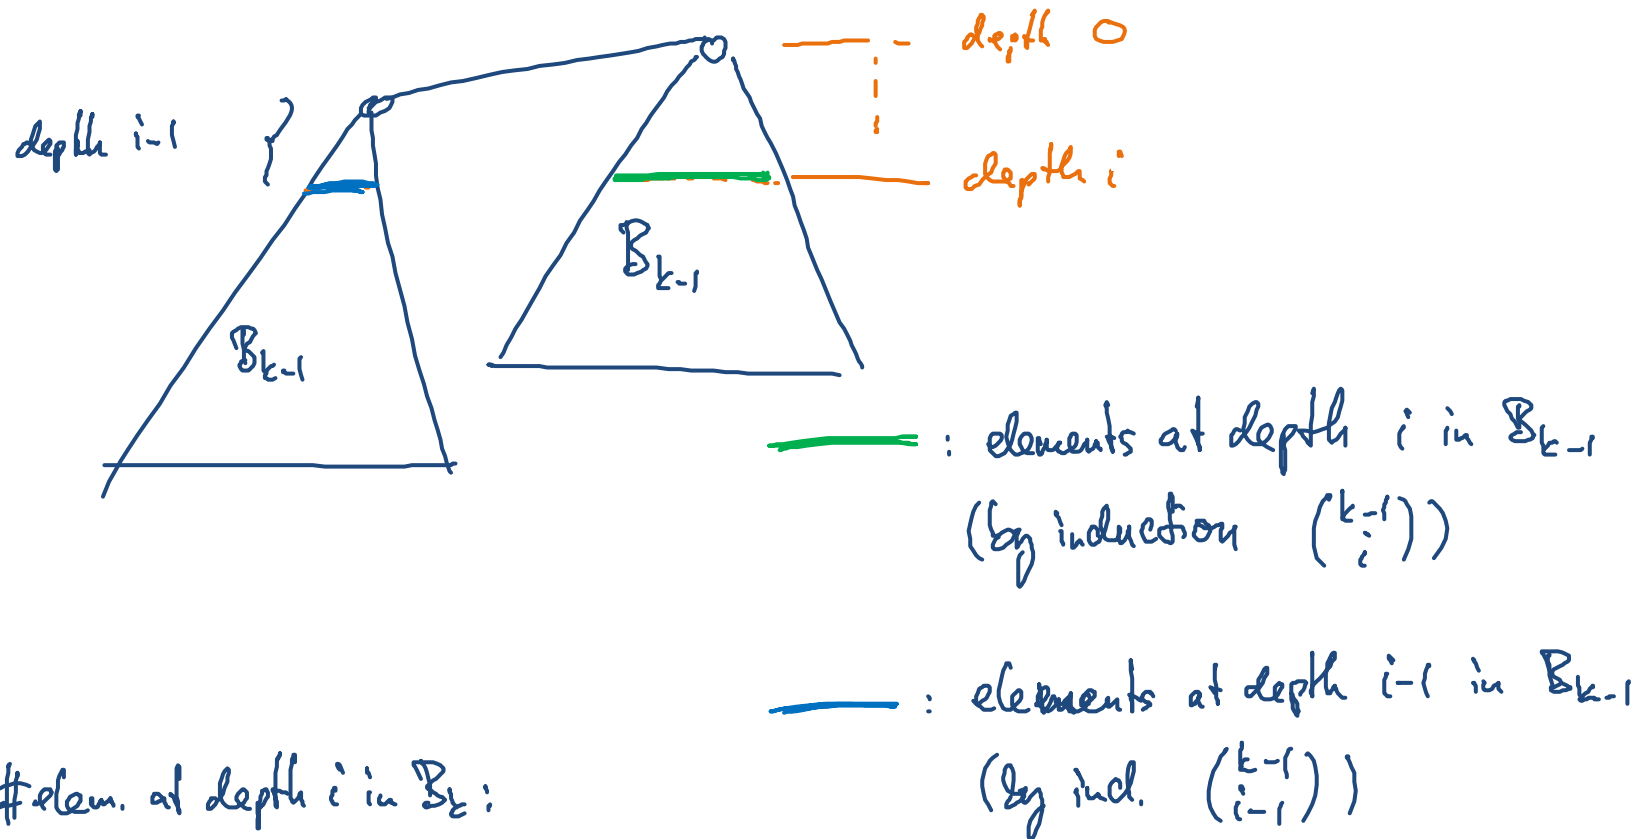 depth 0
depth i-1
depth i
B_{k-1}
B_{k-1}
: elements at depth i in B_{k-1}
(by induction \binom{k-1}{i})
: elements at depth i-1 in B_{k-1}
(by ind. \binom{k-1}{i-1})
#elem. at depth i in B_k: